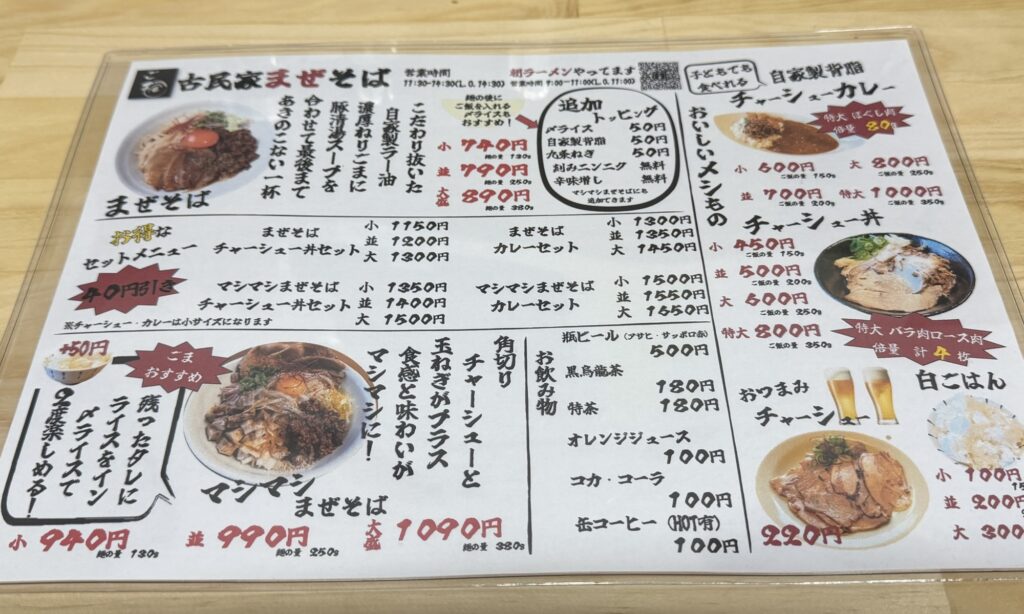 古民家まぜそば
営業時間
11:30-14:30(L.O.14:30)
朝ラーメンやってます
営業時間 9:00-11:00(L.O.11:00)
こだわり抜いた
自家製ラー油
濃厚ねりごまに
豚清湯スープを
合わせて最後まで
あきのこない一杯
まぜそば
麺の後に
ご飯を入れる
〆ライスも
おすすめ!
小 740円
麺の量 130g
並 790円
麺の量 250g
大盛 890円
麺の量 380g
追加
トッピング
〆ライス 50円
自家製背脂 50円
九条ねぎ 50円
刻みニンニク 無料
辛味増し 無料
マシマシまぜそばにも
追加できます
お得な
セットメニュー
40円引き
※チャーシュー・カレーは小サイズになります
まぜそば
チャーシュー丼セット
小 1150円
並 1200円
大 1300円
まぜそば
カレーセット
小 1300円
並 1350円
大 1450円
マシマシまぜそば
チャーシュー丼セット
小 1350円
並 1400円
大 1500円
マシマシまぜそば
カレーセット
小 1500円
並 1550円
大 1650円
+50円
ごま
おすすめ
残ったタレに
ライスをイン
〆ライスで
2度楽しめる!
角切り
チャーシューと
玉ねぎがプラス
食感と味わいが
マシマシに!
マシマシ
まぜそば
小 940円
麺の量 130g
並 990円
麺の量 250g
大盛 1090円
麺の量 380g
お飲み物
瓶ビール (アサヒ・サッポロ赤)
500円
黒烏龍茶
180円
特茶 180円
オレンジジュース
100円
コカ・コーラ
100円
缶コーヒー (HOT有)
100円
おいしいメシもの
子どもでも
食べれる
自家製背脂
チャーシューカレー
特大 ほぐし肉
倍量 80g
小 600円
ご飯の量 150g
大 800円
ご飯の量 250g
並 700円
ご飯の量 200g
特大 1000円
ご飯の量 350g
チャーシュー丼
小 450円
ご飯の量 150g
並 500円
ご飯の量 200g
大 600円
ご飯の量 250g
特大 800円
ご飯の量 350g
特大 バラ肉ロース肉
倍量 計4枚
おつまみ
チャーシュー
220円
白ごはん
小 100円
並 200円
大 300